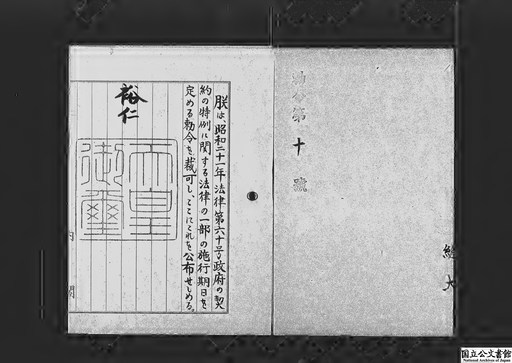 勅令第十號
経大
朕は、昭和二十一年法律第六十号政府の契
約の特例に関する法律の一部の施行期日を
定める勅令を裁可し、ここにこれを公布せしめる。
裕仁
天皇
御璽
国立公文書館
National Archives of Japan